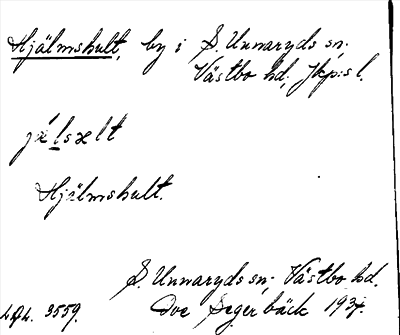 Hjälmshult, by i S. Unnaryds sn;
Västbo hd, Jkp:s l.
jælsælt
Hjälmshult.
S. Unnaryds sn; Västbo hd.
L.A.L. 3559. Ove Segerbäck 1937.